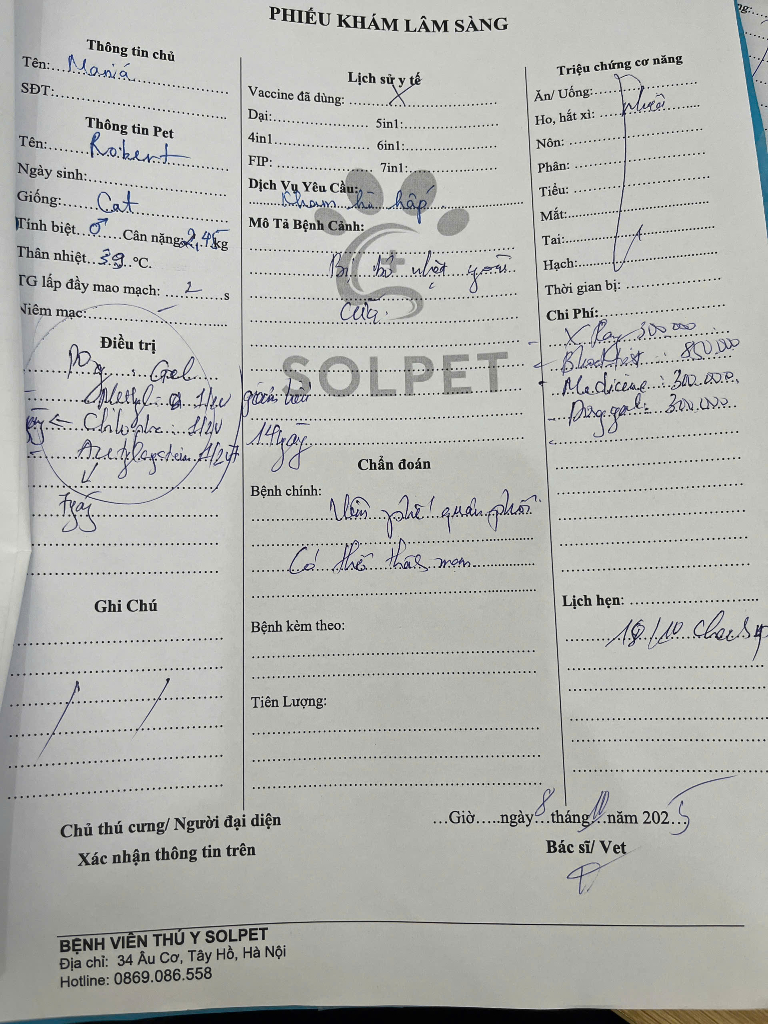 PHIẾU KHÁM LÂM SÀNG
Thông tin chủ
Tên: Maniá
SĐT:
Thông tin Pet
Tên: Robert
Ngày sinh:
Giống: Cat
Tính biệt ♂ Cân nặng: 2,45 kg
Thân nhiệt 39 °C.
TG lấp đầy mao mạch: 2 s
Niêm mạc:
Điều trị
Gel
1/2v
1/2v
7 ngày
Ghi Chú
Lịch sử y tế
Vaccine đã dùng: X
Dại: 5in1:
4in1 6in1:
FIP: 7in1:
Dịch Vụ Yêu Cầu:
Khám hô hấp
Mô Tả Bệnh Cảnh:
Bị bỏ nhặt
SOLPET
Chẩn đoán
Bệnh chính:
Viêm phế quản phổi
Có thể
Bệnh kèm theo:
Tiên Lượng:
Triệu chứng cơ năng
Ăn/ Uống:
Ho, hắt xì:
Nôn:
Phân:
Tiểu:
Mắt:
Tai:
Hạch:
Thời gian bị:
Chi Phí:
X Ray 300 000
Bloodtest : 850.000
Medicene : 300.000.
300.000
Lịch hẹn:
18/10
Chủ thú cưng/ Người đại diện
Xác nhận thông tin trên
Giờ ngày 8 tháng 10 năm 2025
Bác sĩ/ Vet
BỆNH VIÊN THÚ Y SOLPET
Địa chỉ: 34 Âu Cơ, Tây Hồ, Hà Nội
Hotline: 0869.086.558